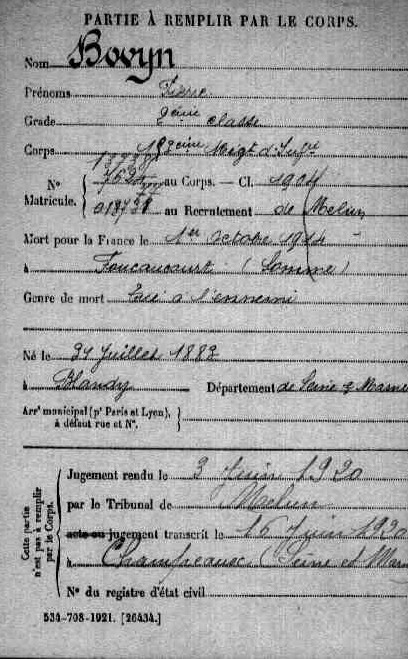 PARTIE À REMPLIR PAR LE CORPS.
Nom Bovyn
Prénoms Pierre
Grade 2ème classe
Corps Regt d'Infrie
Nº
Matricule.
au Corps. — Cl. 1904
au Recrutement de Melun
Mort pour la France le 1er octobre 1914
à Foucaucourt (Somme)
Genre de mort Tué à l'ennemi
Né le Juillet 1882
à Blandy Département de Seine & Marne
Arrt municipal (pr Paris et Lyon),
à défaut rue et Nº.
Cette partie
n'est pas à remplir
par le Corps.
Jugement rendu le 3 Juin 1920
par le Tribunal de Melun
acte ou jugement transcrit le 16 Juin 1920
à Champeaux (Seine et Marn
Nº du registre d'état civil
534-708-1921. [26434.]